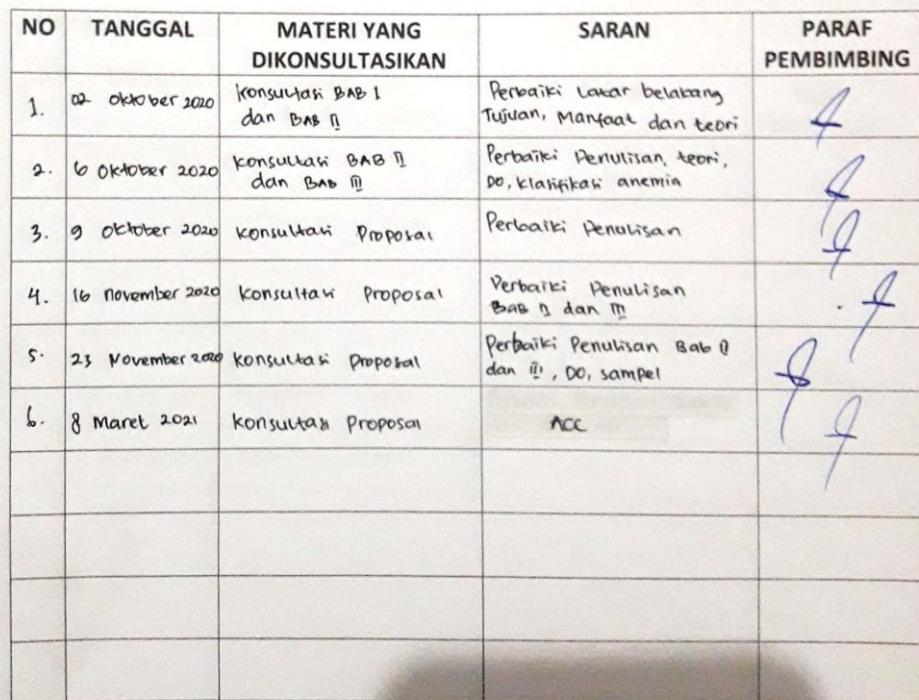 NO TANGGAL MATERI YANG DIKONSULTASIKAN SARAN PARAF PEMBIMBING
1. 02 Oktober 2020 konsultasi BAB I dan BAB II Perbaiki Latar belakang Tujuan, Manfaat dan teori
2. 6 Oktober 2020 konsultasi BAB II dan BAB III Perbaiki Penulisan, teori, DO, klasifikasi anemia
3. 9 Oktober 2020 konsultasi Proposal Perbaiki Penulisan
4. 16 november 2020 konsultasi Proposal Perbaiki Penulisan BAB II dan III
5. 23 November 2020 konsultasi Proposal Perbaiki Penulisan Bab II dan III, DO, sampel
6. 8 Maret 2021 konsultasi Proposal ACC